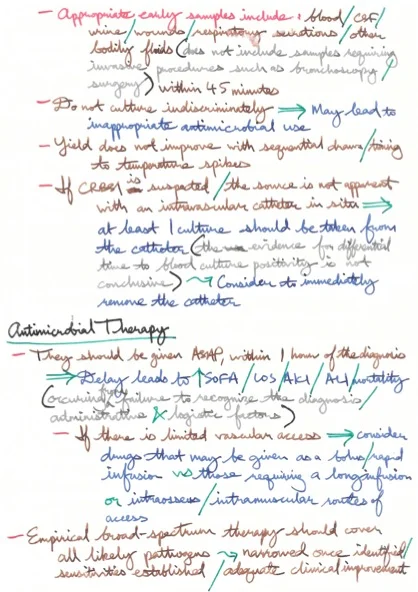 - Appropriate early samples include : blood/CSF/
urine/wounds/respiratory secretions/other
bodily fluids (does not include samples requiring
invasive procedures such as bronchoscopy/
surgery) within 45 minutes
- Do not culture indiscriminately ⟹ May lead to
inappropriate antimicrobial use
- Yield does not improve with sequential draws/timing
to temperature spikes
- If CRBSI is suspected/the source is not apparent
with an intravascular catheter in situ ⟹
at least 1 culture should be taken from
the catheter (the evidence for differential
time to blood culture positivity is not
conclusive) ⇝ Consider to immediately
remove the catheter
Antimicrobial Therapy
- They should be given ASAP, within 1 hour of the diagnosis
⟹ Delay leads to ↑SOFA/LOS/AKI/ALI/mortality
(occuring failure to recognize the diagnosis/
administrative & logistic factors)
- If there is limited vascular access ⟹ consider
drugs that may be given as a bolus/rapid
infusion vs those requiring a long infusion
or intraosseus/intramuscular routes of
access
- Empirical broad-spectrum therapy should cover
all likely pathogens ⇝ narrowed once identified/
sensitivities established/adequate clinical improvement